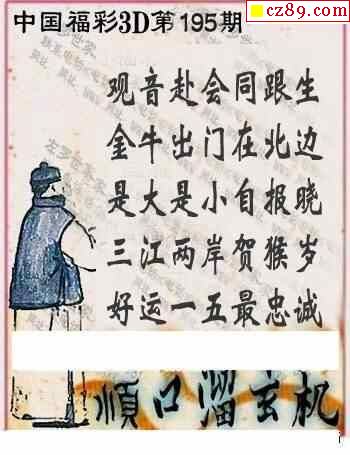 cz89.com
中国福彩3D第195期
观音赴会同跟生
金牛出门在北边
是大是小自报晓
三江两岸贺猴岁
好运一五最忠诚
顺口溜玄机